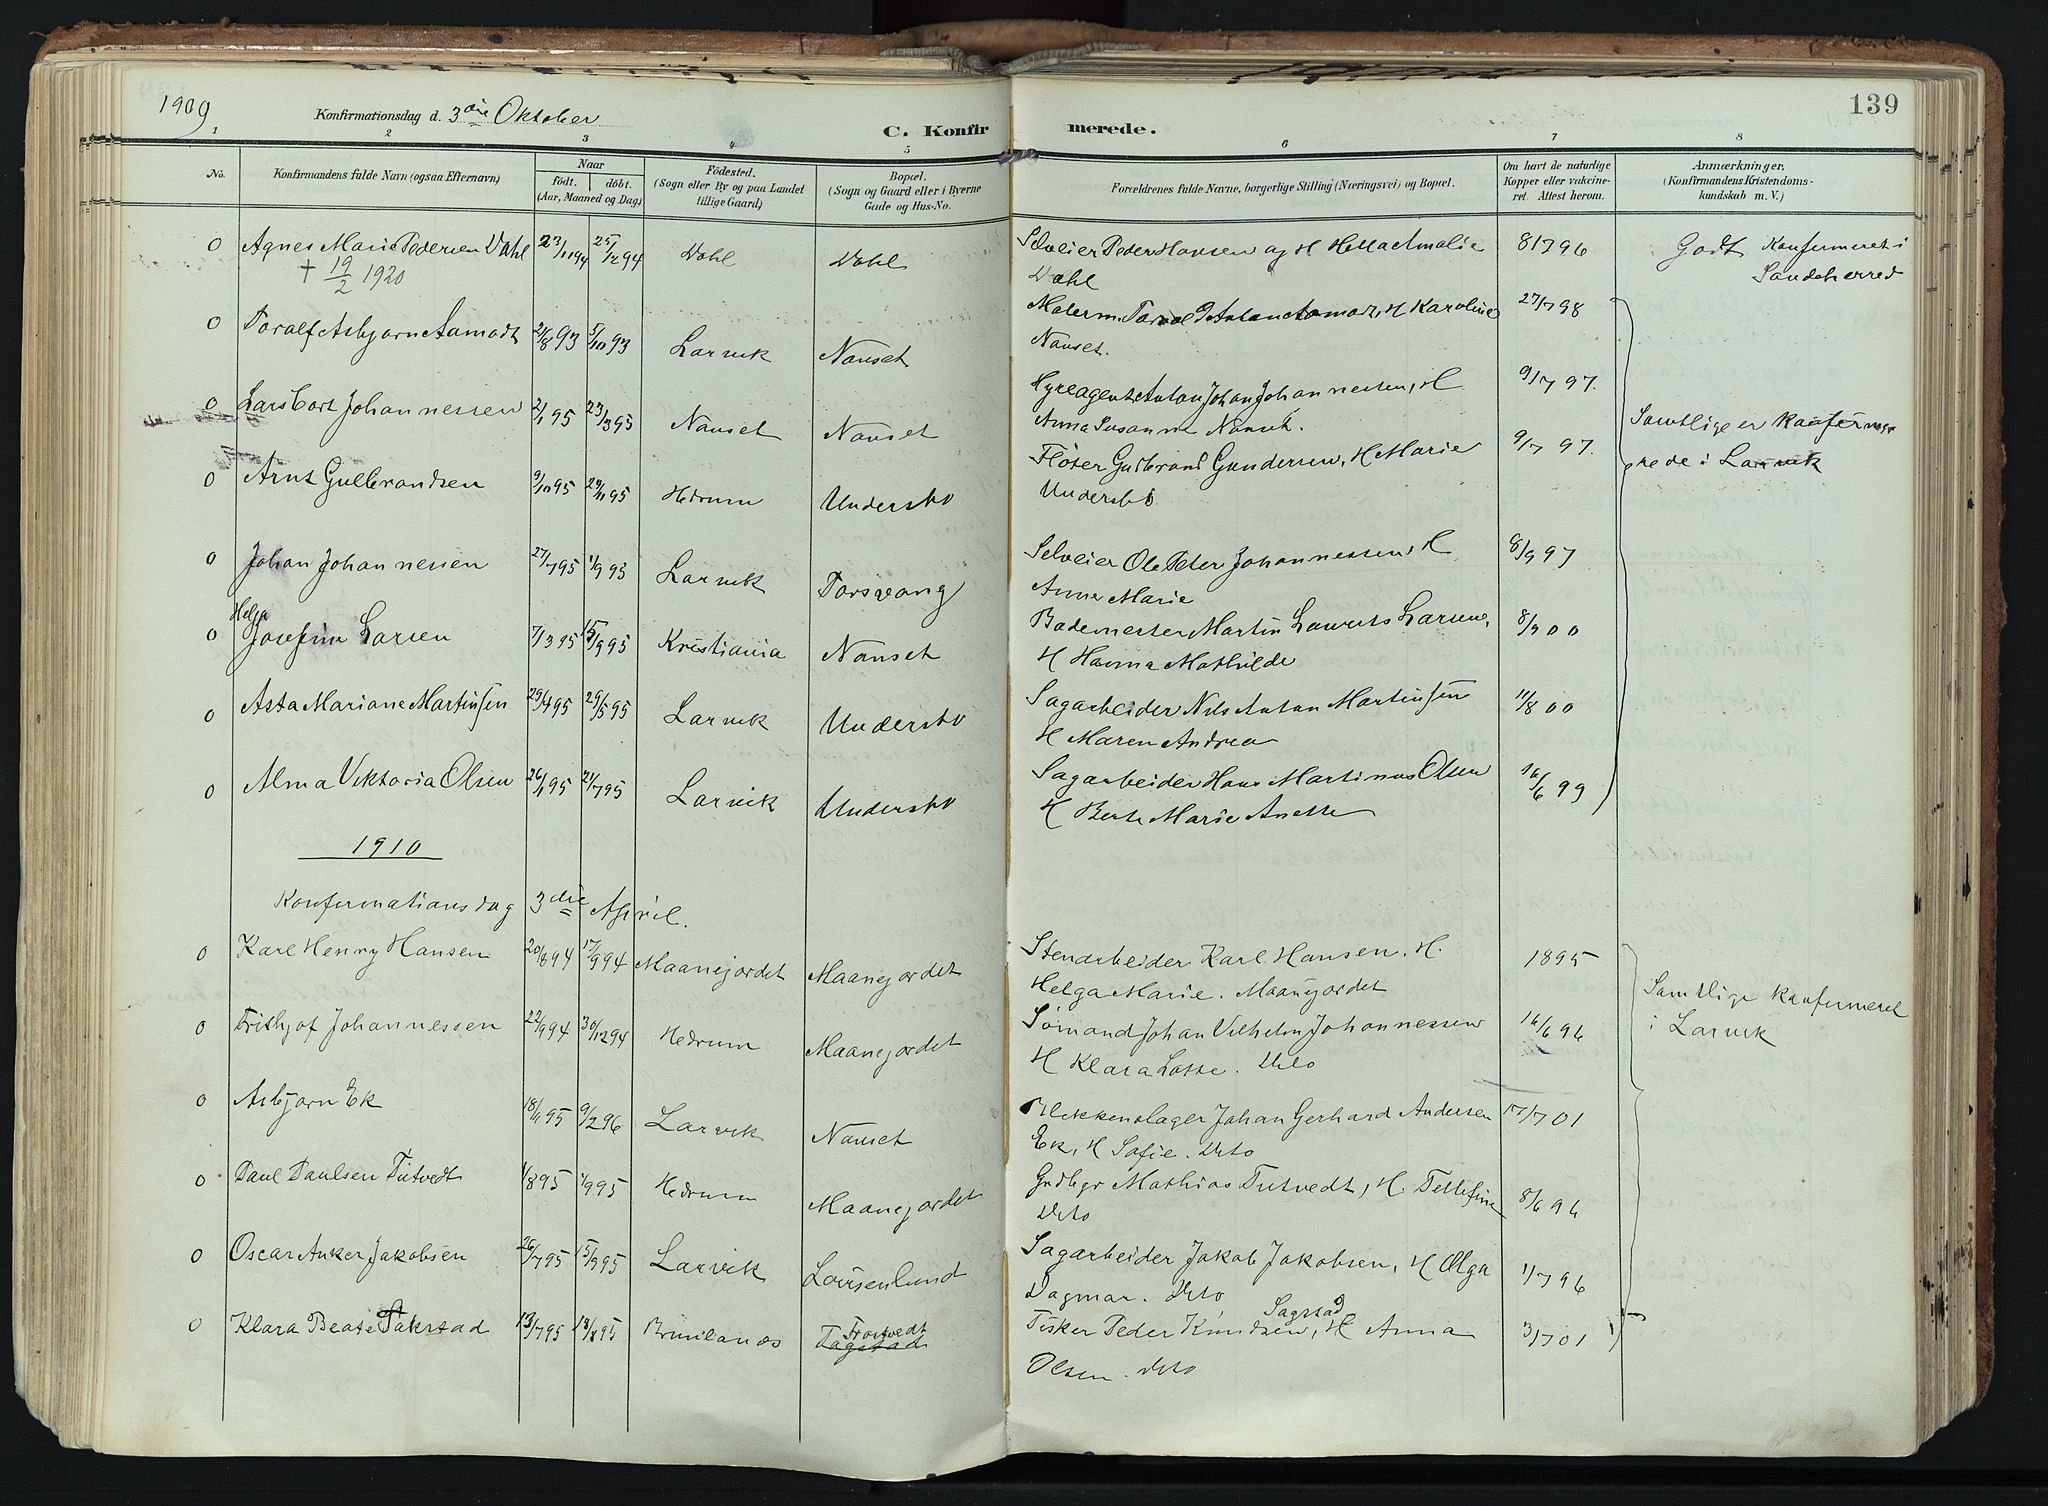 1909 Konfirmationsdag d. 3die Oktober
C. Konfirmerede.
139
1 2 3 4 5 6 7 8
No. Konfirmandens fulde Navn (ogsaa Efternavn) Naar født. døbt. (Aar, Maaned og Dag) Fødested. (Sogn eller By og paa Landet tillige Gaard) Bopæl. (Sogn og Gaard eller i Byerne Gade og Hus-No. Forældrenes fulde Navne, borgerlige Stilling (Næringsvei) og Bopæl. Om havt de naturlige Kopper eller vakcineret. Attest herom. Anmærkninger, (Konfirmandens Kristendomskundskab m. V.)
0 Agnes Marie Pedersen Dahl 23/11 94 25/12 94 Dahl Dahl Selveier Peder Hansen og H Amalie 8/7 96 Godt Konfermeret i
† 19/2 1920 Dahl Sandeherred
0 Toralf Asbjørn Aamodt 2/8 93 5/10 93 Larvik Nanset Malerm. Anton Aamodt, H Karoline 27/7 98
Nanset.
0 Lars Johannessen 2/1 95 23/3 95 Nanset Nanset Hyreagent Anton Johan Johannessen, H 9/7 97.
Anna Susanne Nanset. Samtlige er Konfermerede i Larvik
0 Arnt Gulbrandsen 9/10 95 29/11 95 Hedrum Undersbo Fløter Gulbrand Gundersen, H Marie 9/7 97.
Undersbo
0 Johan Johannessen 27/7 95 1/9 95 Larvik Torsvang Selveier Ole Peter Johannessen, H 8/9 97
Anne Marie
0 Helga Josefine Larsen 7/3 95 15/9 95 Kristiania Nanset Bademester Martin Lauvits Larsen, 8/9 00
H Hanna Mathilde
0 Asta Mariane Martinsen 29/4 95 29/5 95 Larvik Undersbo Sagarbeider Nils Anton Martinsen 11/8 00
H Maren Andrea
0 Alma Viktoria Olsen 26/1 95 21/7 95 Larvik Undersbo Sagarbeider Hans Martinus Olsen 16/6 99
H Berte Marie Anette
1910
Konfirmationsdag 3die April.
0 Karl Henry Hansen 20/8 94 17/9 94 Maanejordet Maanejordet Stenarbeider Karl Hansen, H. 1895
Helga Marie. Maanejordet Samtlige Konfermeret
0 Frithjof Johannessen 22/9 94 30/12 94 Hedrum Maanejordet Sømand Johan Vilhelm Johannessen 16/6 96 i Larvik
H Klara Lotte. Dito
0 Asbjørn Ek 18/11 95 9/2 96 Larvik Nanset Blikkenslager Johan Gerhard Andersen 17/7 01
Ek, H Sofie. Dito
0 Paul Paulsen Tutvedt 1/8 95 1/9 95 Hedrum Maanejordet Grdbgr Mathias Tutvedt, H. Tellefine 8/6 96
Dito
0 Oscar Anker Jakobsen 26/7 95 15/9 95 Larvik Lovisenlund Sagarbeider Jakob Jakobsen, H Olga 1/7 96
Dagmar. Dito
0 Klara Beate Sakstad 13/7 95 18/8 95 Brunlanæs Frostvedt Fisker Peder Knudsen Sagstad, H Anna 3/7 01
Olsen. Dito